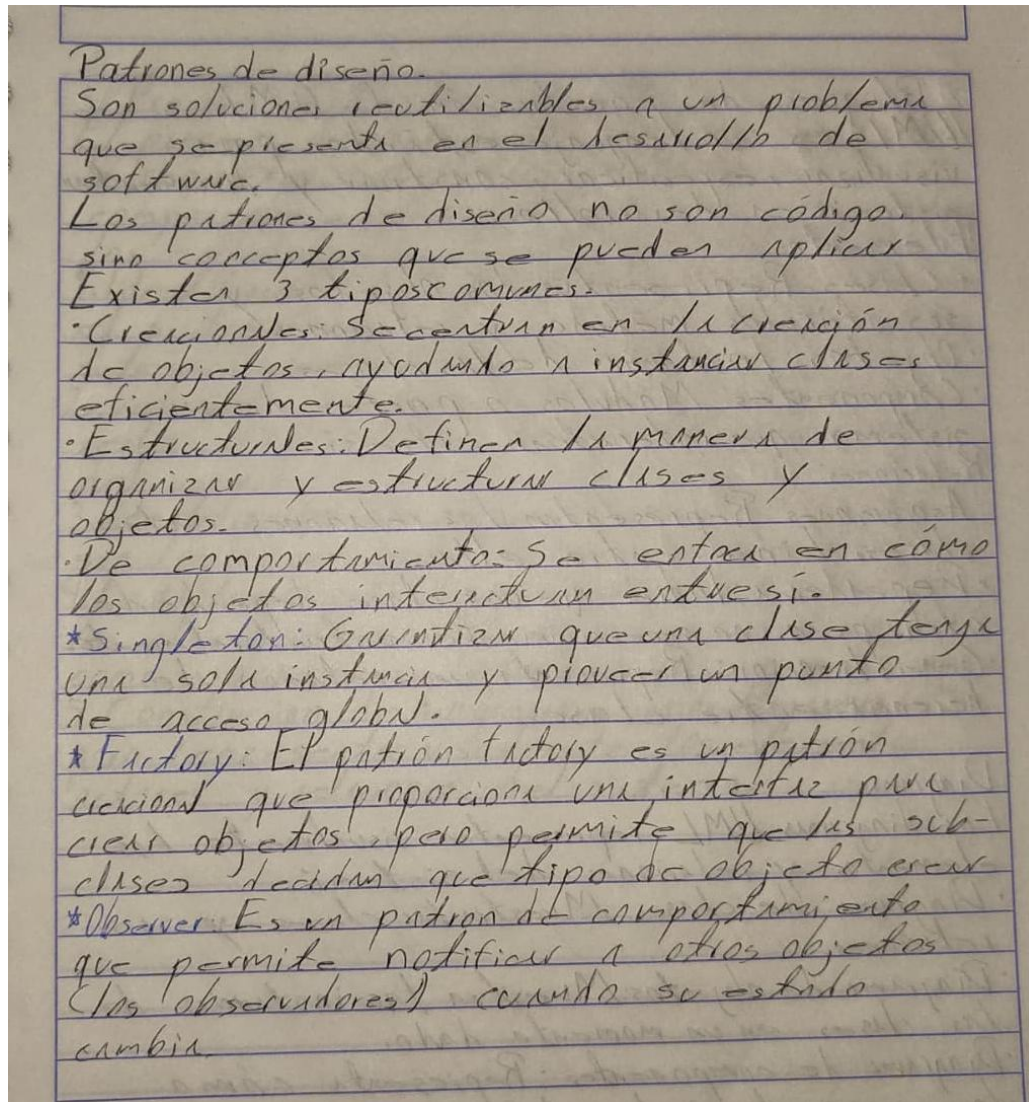 Patrones de diseño.
Son soluciones reutilizables a un problema
que se presenta en el desarrollo de
software.
Los patrones de diseño no son código,
sino conceptos que se pueden aplicar
Existen 3 tipos comunes:
·Creacionales: Se centran en la creación
de objetos, ayudando a instanciar clases
eficientemente.
·Estructurales: Definen la manera de
organizar y estructurar clases y
objetos.
·De comportamiento: Se enfoca en cómo
los objetos interactuan entre sí.
*Singleton: Garantizar que una clase tenga
una sola instancia y proveer un punto
de acceso global.
*Factory: El patrón factory es un patrón
creacional que proporciona una interfaz para
crear objetos, pero permite que las sub-
clases decidan que tipo de objeto crear
*Observer: Es un patron de comportamiento
que permite notificar a otros objetos
(los observadores) cuando su estado
cambia.